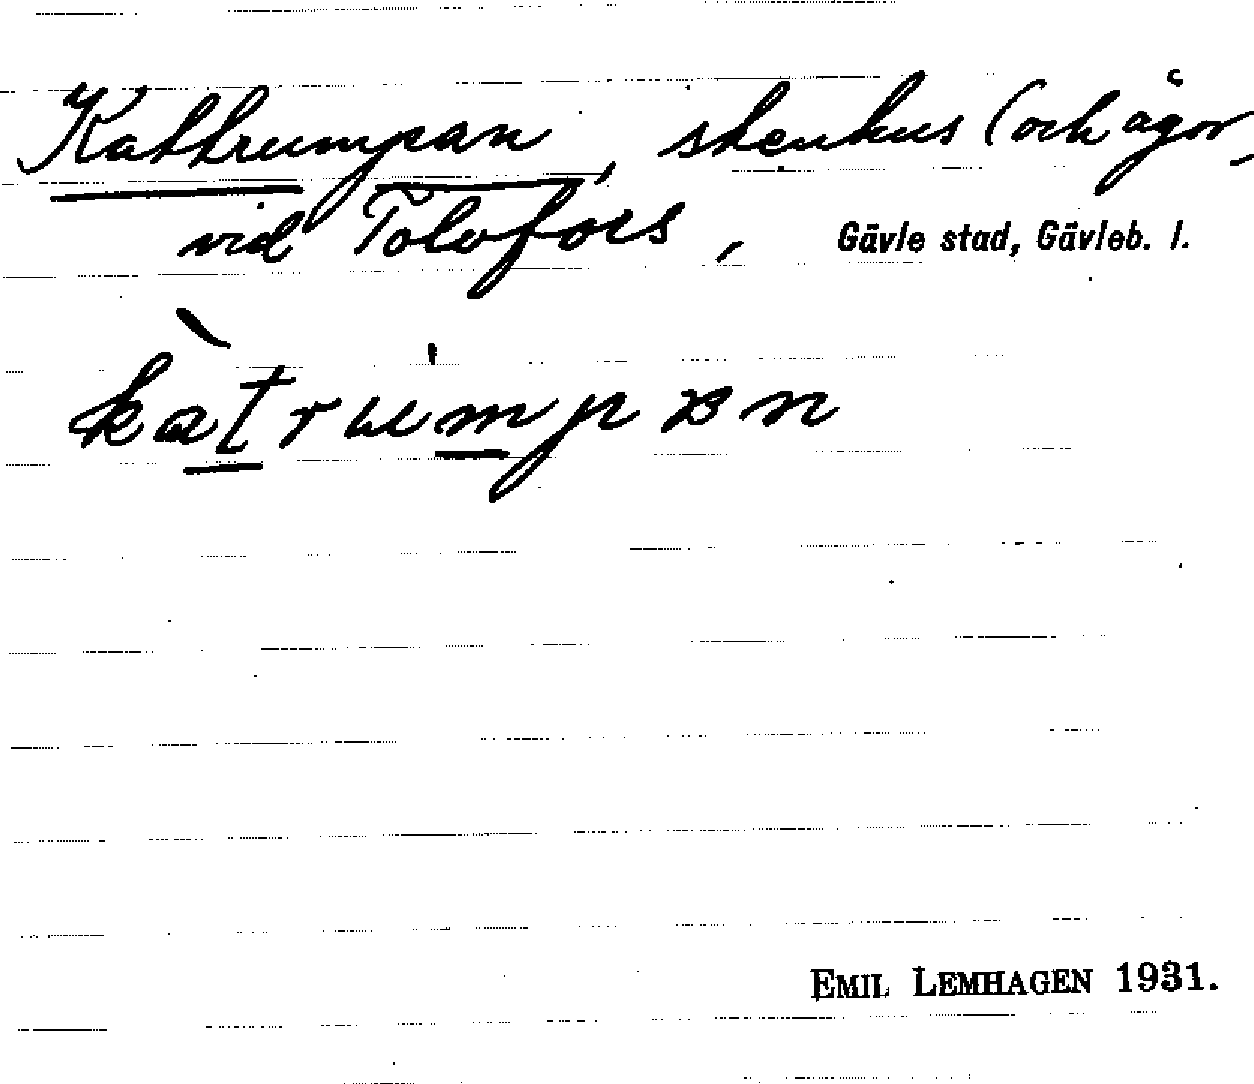 Kattrumpan, stenhus (och ägor,
vid Tolvfors, Gävle stad, Gävleb. l.
kàtrumpən
EMIL LEMHAGEN 1931.